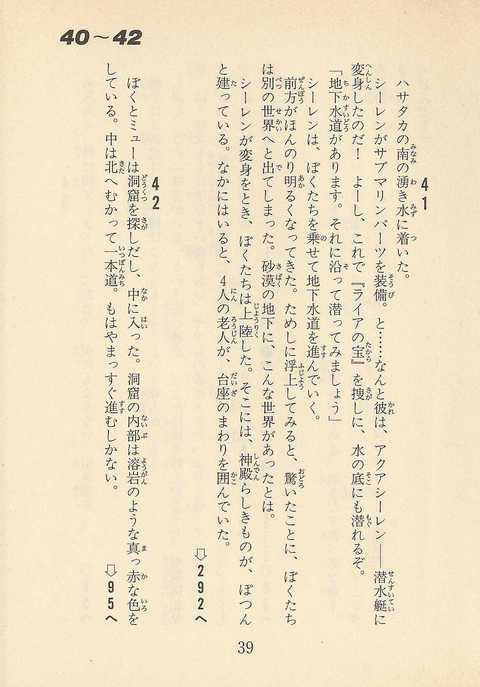 40～42
41
ハサタカの南の湧き水に着いた。
シーレンがサブマリンパーツを装備。と……なんと彼は、アクアシーレン――潜水艇に
変身したのだ！　よーし、これで『ライアの宝』を捜しに、水の底にも潜れるぞ。
「地下水道があります。それに沿って潜ってみましょう」
シーレンは、ぼくたちを乗せて地下水道を進んでいく。
前方がほんのり明るくなってきた。ためしに浮上してみると、驚いたことに、ぼくたち
は別の世界へと出てしまった。砂漠の地下に、こんな世界があったとは。
シーレンが変身をとき、ぼくたちは上陸した。そこには、神殿らしきものが、ぽつん
と建っている。なかにはいると、4人の老人が、台座のまわりを囲んでいた。
⇨292へ
42
ぼくとミューは洞窟を探しだし、中に入った。洞窟の内部は溶岩のような真っ赤な色を
している。中は北へむかって一本道。もはやまっすぐ進むしかない。
⇨95へ
39